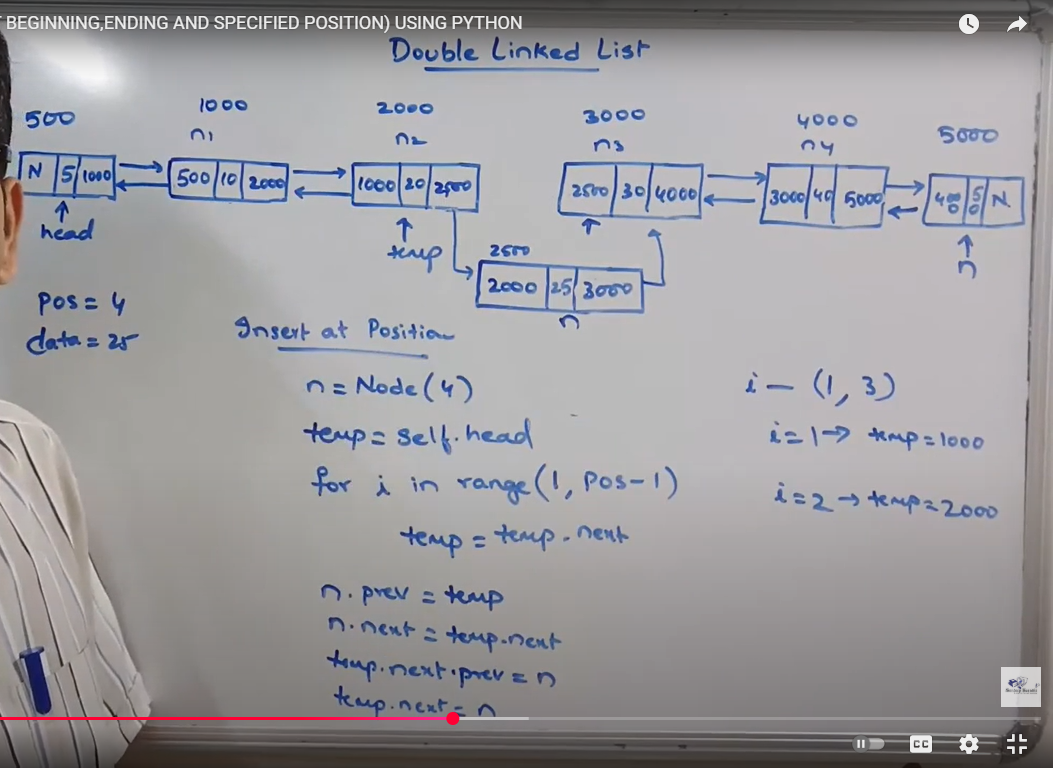 BEGINNING,ENDING AND SPECIFIED POSITION) USING PYTHON
Double Linked List
500 1000 2000 3000 4000 5000
n1 n2 n3 n4
N 5 1000 500 10 2000 1000 20 2500 2500 30 4000 3000 40 5000 400 50 N
head temp n
2500
2000 25 3000
n
pos = 4
data = 25
Insert at Position
n = Node(4)
temp = self.head
for i in range(1, pos-1)
temp = temp.next
n.prev = temp
n.next = temp.next
temp.next.prev = n
temp.next = n
i — (1, 3)
i = 1 → temp = 1000
i = 2 → temp = 2000
CC